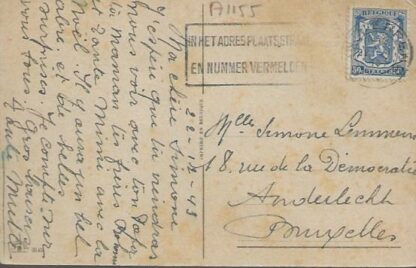 A1155
BELGIQUE
IN HET ADRES PLAATS, STRAAT
EN NUMMER VERMELDEN
22-IX-43
Ma chère Simone
J'espère que tu viendras
nous voir avec ton Papa
ta Maman tes frères
et tante Mimi avec la
Noël. Il y aura un bel
arbre et de belles
surprises. Je compte sur
vous tous. Gros baisers
Mlle Simone Lemmens
18, rue de la Démocratie
Anderlecht
Bruxelles